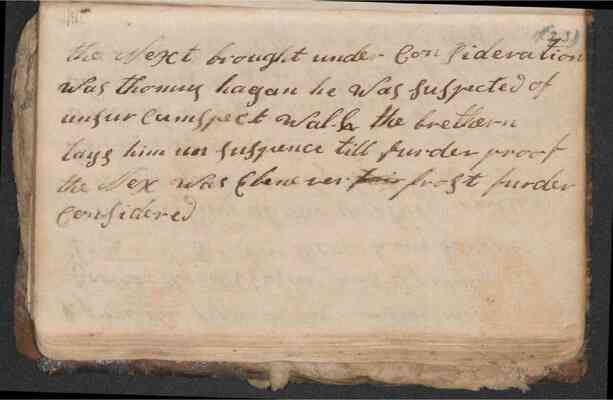 (23)
the Next brought under Consideration
was thomas hagan he was suspected of
unsur Cumspect walk the brethern
lays him un suspence till furder proof
the Nex was Ebenever frost furder
Considered